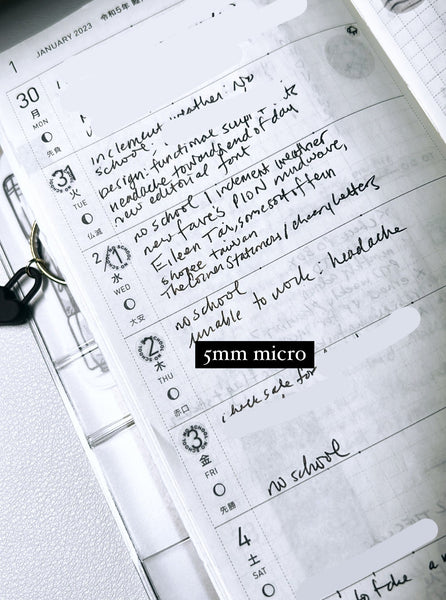 1 JANUARY 2023 令和5年
30
月
MON
先負
inclement weather: No
school.
31
火
TUE
仏滅
Design: functional
headache towards end of day
new editorial font
2/1
水
WED
大安
no school / inclement weather
new faves PION mudwave,
Eileen Tai, some sort of fern
shopee taiwan
The Corner Stationers / cheery letters
2
木
THU
赤口
no school
unable to work: headache
5mm micro
3
金
FRI
先勝
check sale for
no school
4
土
SAT